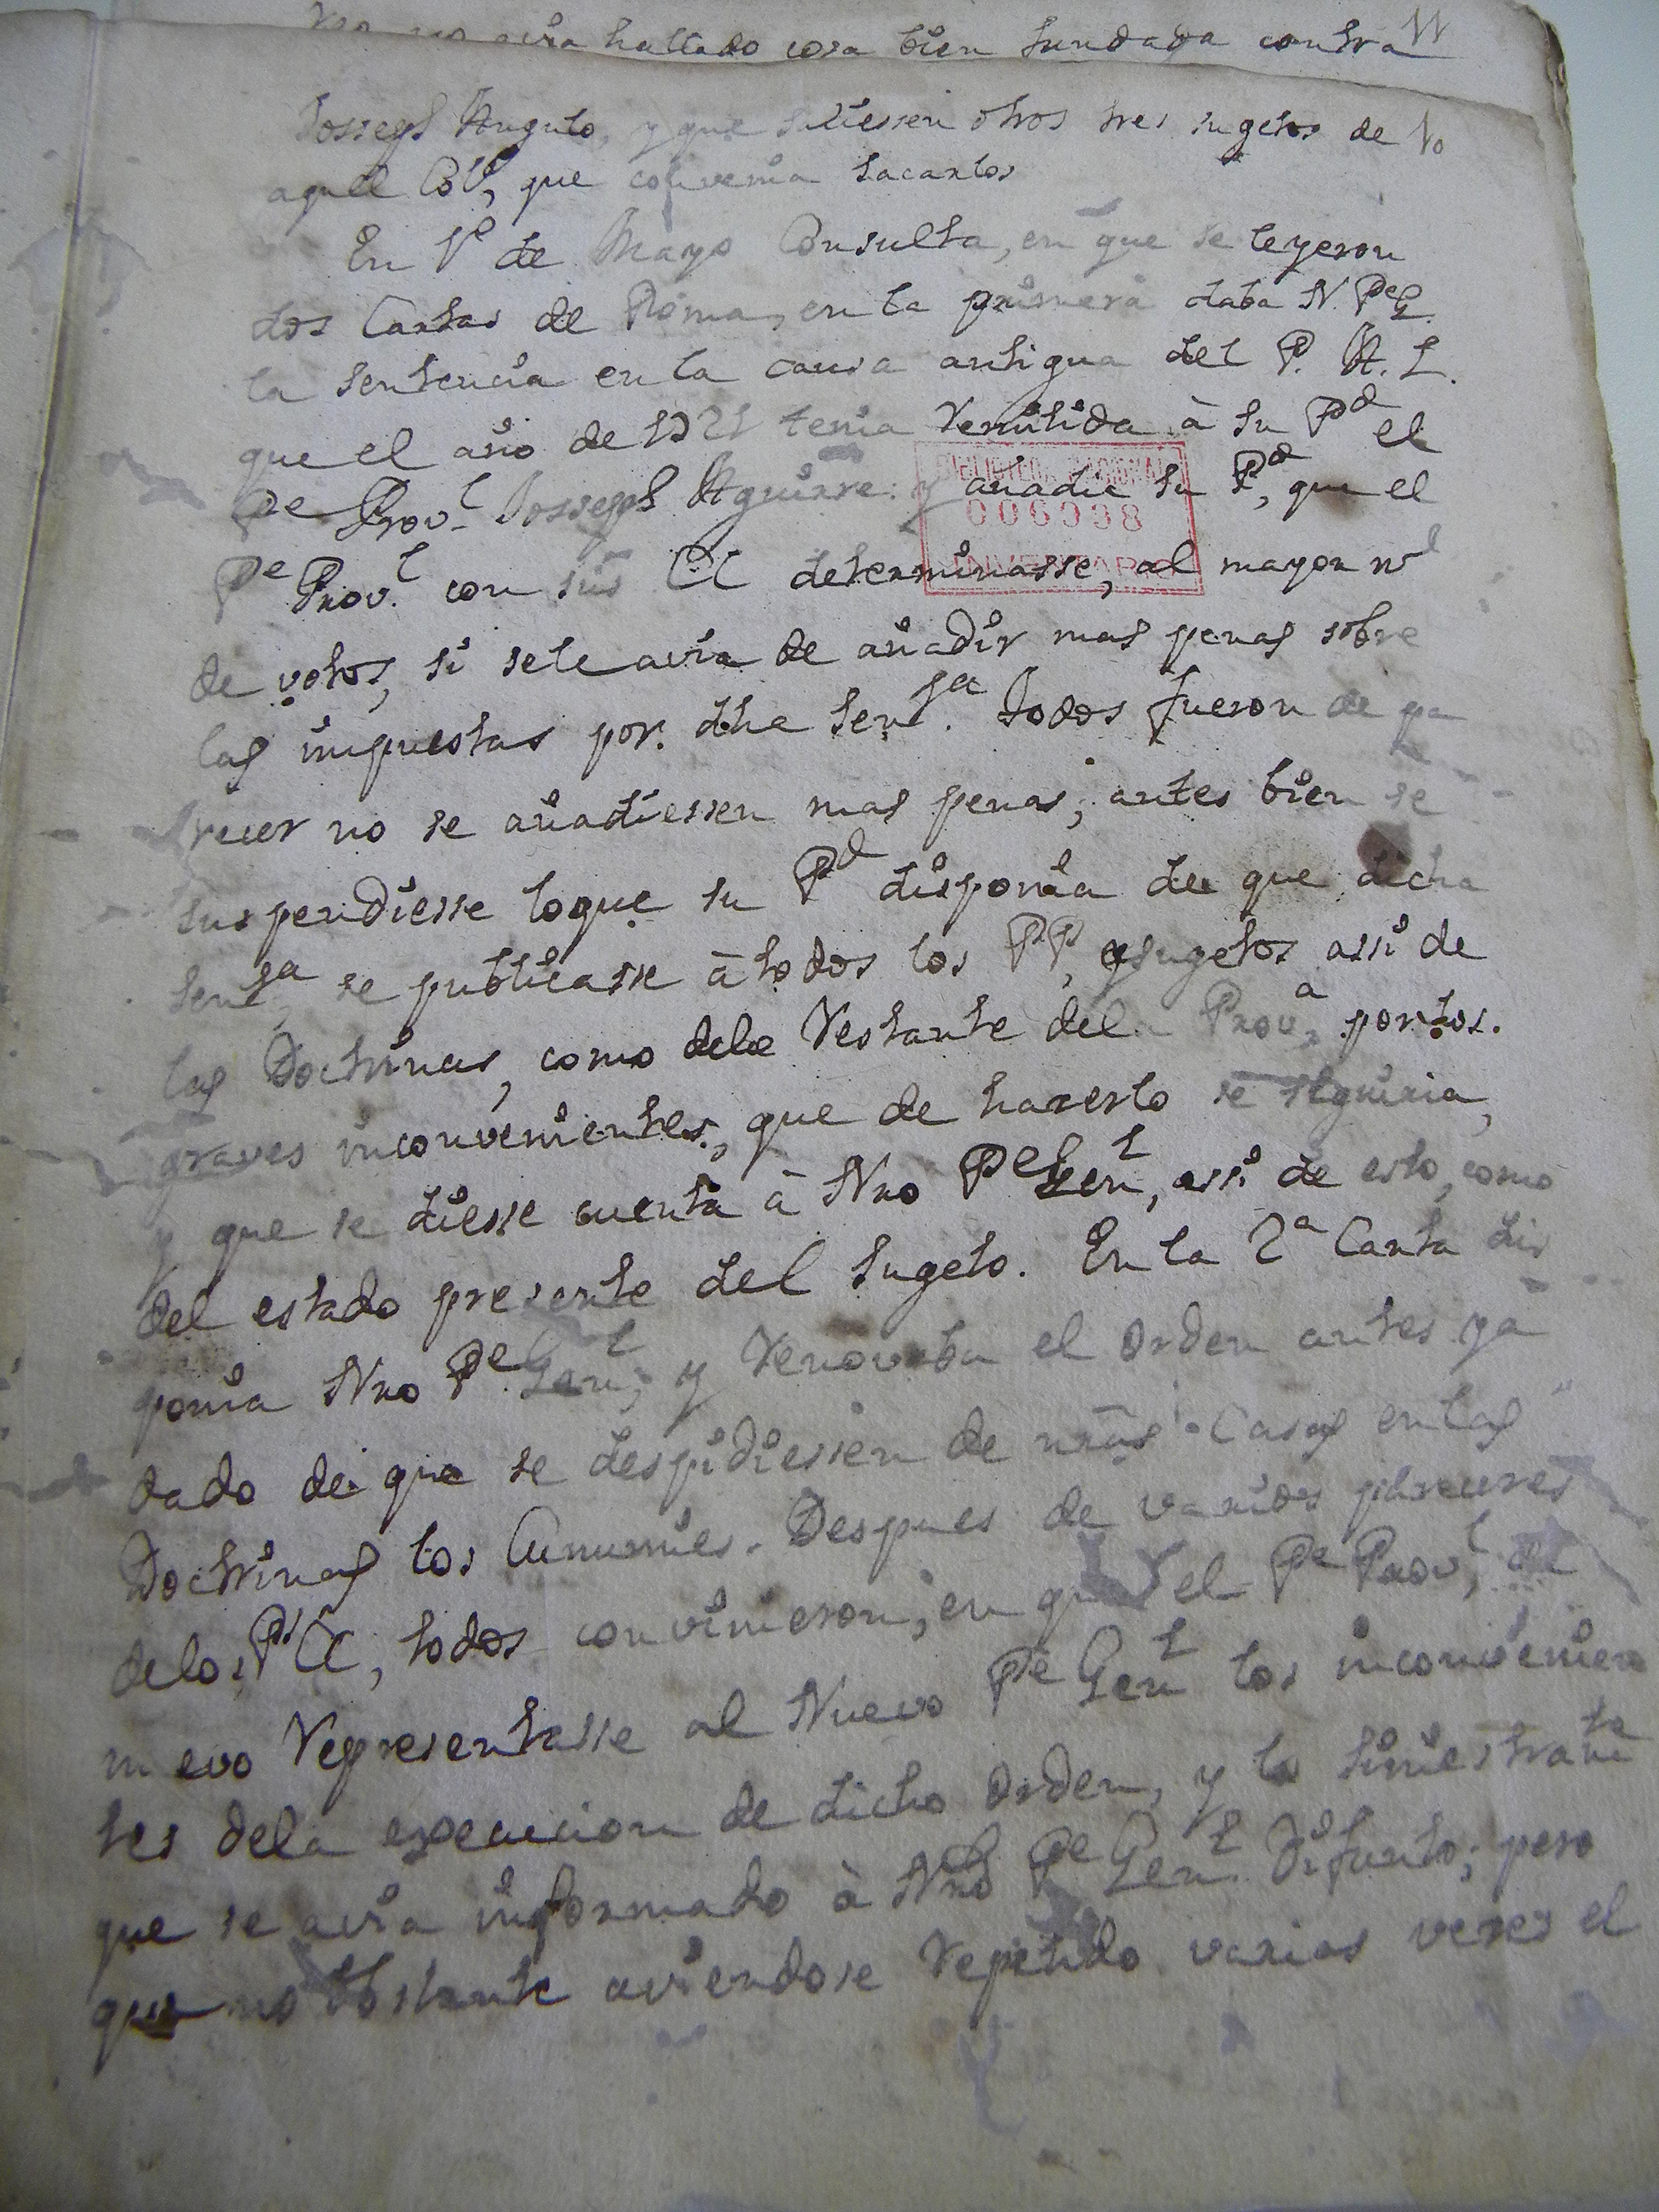 avia hallado cosa bien fundada contra
Josseph Angulo, y que saliessen otros tres sugetos de 10
aquel Colº, que convenia sacarlos
En 1º de Mayo Consulta, en que se leyeron
dos Cartas de Roma, en la primera daba N. Pe G.
la sentencia en la causa antigua del P. A. L.
que el año de 1721 tenia remitida à su Pd el
Pe Provl Josseph Aguirre: y añadie su Pd, que el
BIBLIOTECA NACIONAL
006998
INVENTARIO
Pe Provl. con sus CC determinasse, al mayor nl
de votos, si se le avia de añadir mas penas sobre
las impuestas por dha senta. Todos fueron de pa
recer no se añadiessen mas penas; antes bien se
suspendiesse loque su Pd disponia de que dicha
senta, se publicasse à todos los PP, y sugetos assi de
las Doctrinas, como dela restante dela Prova, por los
graves inconvenientes, que de hazerlo se seguiria,
y que se diesse cuenta à Nro Pe Genl, assi de esto, como
del estado presente del sugeto. En la 2a Carta dis
ponia Nro Pe Genl, y renovaba el orden antes ya
dado de que se despidiessen de nras Casas en las
Doctrinas los Cunumies. Despues de varios pareceres
delos PP CC, todos convinieron, en que el Pe Provl, de
nuevo representasse al Nuevo Pe Genl los inconvenien
tes dela execucion de dicho orden, y lo siniestramte
que se avia informado à Nro Pe Genl Difunto; pero
que no obstante aviendose repetido varias vezes el